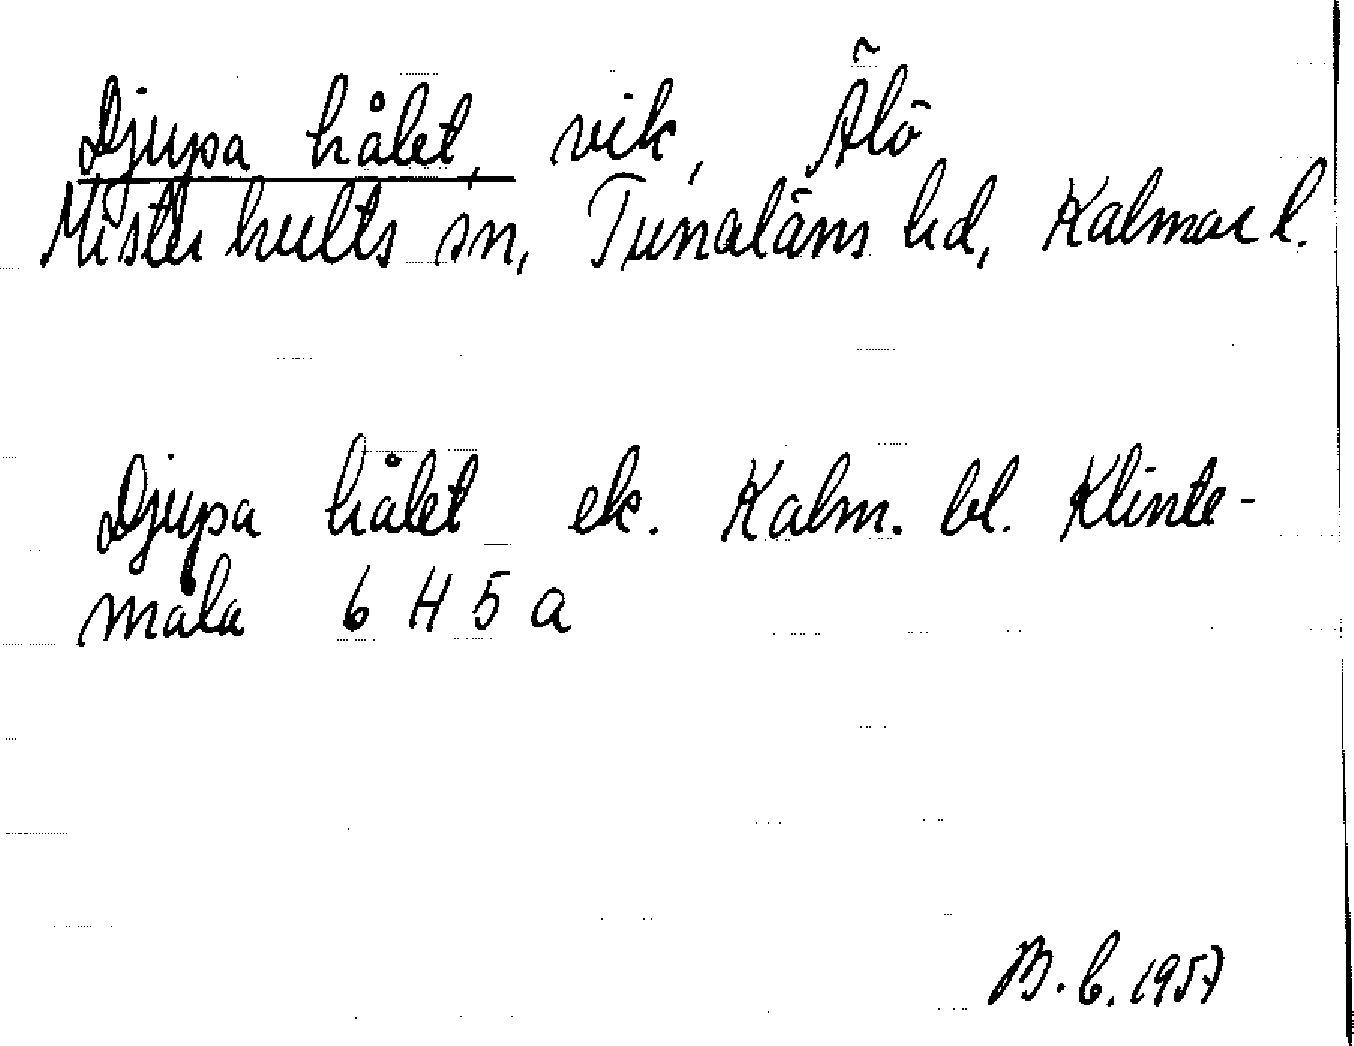 Djupa hålet, vik, Älö
Misterhults sn, Tunaläns hd, Kalmar l.
Djupa hålet ek. Kalm. bl. Klinte-
måla 6 H 5 a
B. L. 1957